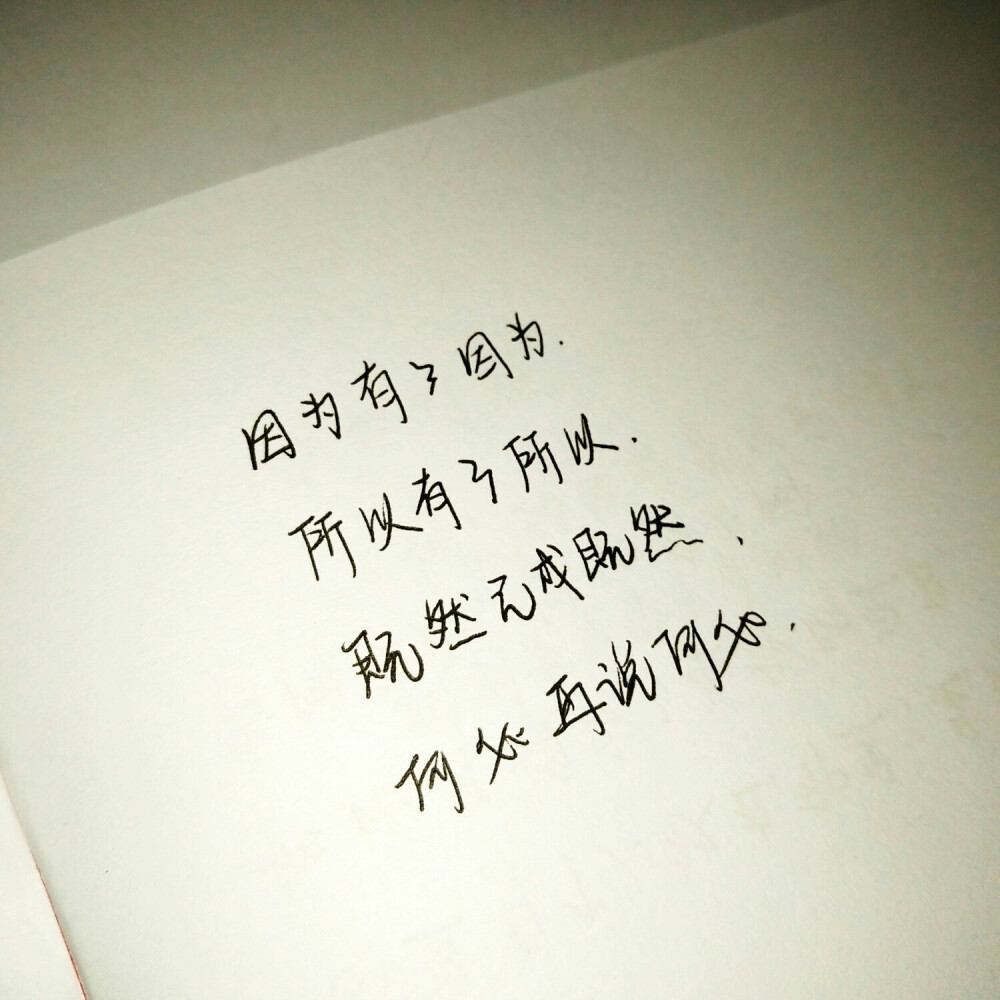 因为有了因为.
所以有了所以.
既然已成既然.
何必再说何必.